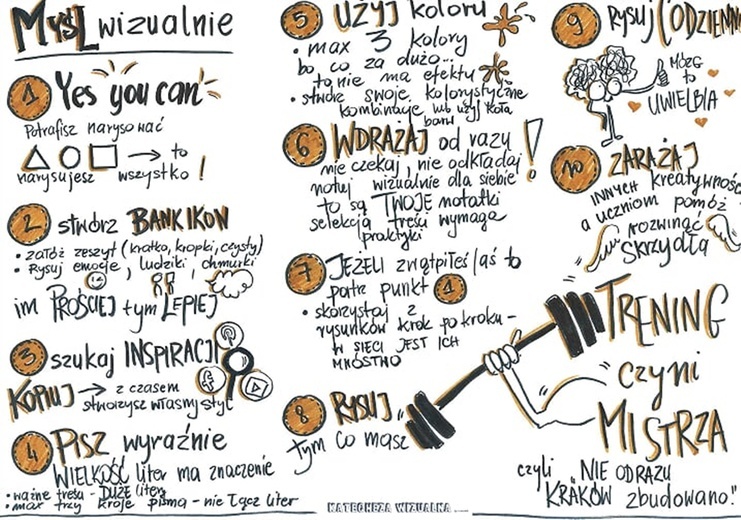 MYŚL wizualnie
1 Yes you can
Potrafisz narysować
→ to
narysujesz wszystko!
2 stwórz BANK IKON
• załóż zeszyt (kratka, kropki, czysty)
• Rysuj emocje, ludziki, chmurki
im PROŚCIEJ tym LEPIEJ
3 szukaj INSPIRACJI
KOPIUJ → z czasem
stworzysz własny styl
4 Pisz wyraźnie
WIELKOŚĆ liter ma znaczenie
• ważne treści - DUŻE litery
• max trzy kroje pisma - nie łącz liter
5 UŻYJ koloru
• max 3 kolory
bo co za dużo...
to nie ma efektu
• stwórz swoje kolorystyczne
kombinacje lub użyj koła
barw
6 WDRAŻAJ od razu!
nie czekaj, nie odkładaj
notuj wizualnie dla siebie
to są TWOJE notatki
selekcja treści wymaga
praktyki
7 JEŻELI zwątpiłeś/aś to
patrz punkt 1
• skorzystaj z
rysunków krok po kroku -
W SIECI JEST ICH
MNÓSTWO
8 RYSUJ
tym co masz
9 Rysuj CODZIENN
MÓZG
to
UWIELBIA
10 ZARAŻAJ
INNYCH kreatywnośc
a uczniom pomóż
rozwinąć
SKRZYDŁA
TRENING
czyni
MISTRZA
czyli "NIE OD RAZU
KRAKÓW zbudowano."
KATECHEZA WIZUALNA